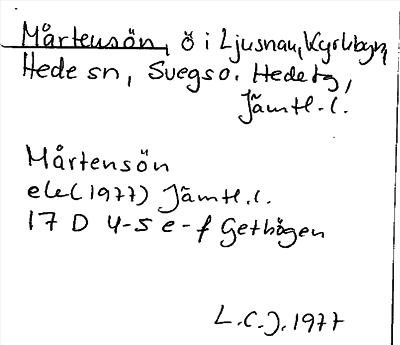 Mårtensön, ö i Ljusnan, Kyrkbyn,
Hede sn, Svegs o. Hede tg,
Jämtl. l.
Mårtensön
ek (1977) Jämtl. l.
17 D 4-5 e-f Gethögen
L.C.J. 1977